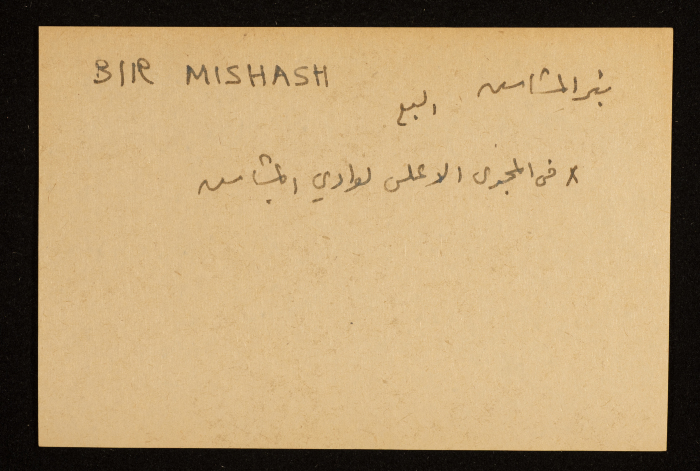 BIR MISHASH
بئر المشاش
السبع
x في المجرى الاعلى لوادي المشاش